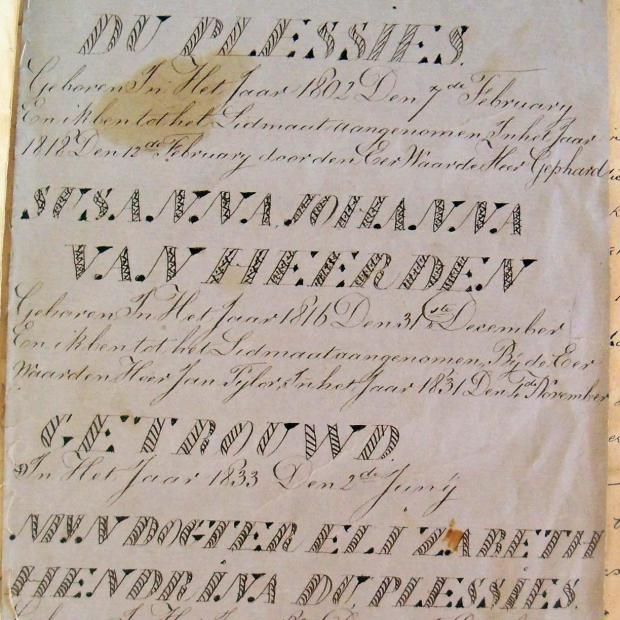 DU PLESSIES.
Geboren In Het Jaar 1802 Den 7de February
En ik ben tot het Lidmaat aangenomen In het Jaar
1818 Den 12de February door den Eer Waarde Heer Gephard
SUSANNA JOHANNA
VAN HEERDEN
Geboren In Het Jaar 1816 Den 31ste December
En ik ben tot het Lidmaat aangenomen, Bij de Eer
Waarden Heer Jan Tylor, In het Jaar 1831 Den 4de November
GETROUWD.
In Het Jaar 1833 Den 2de Junij
MIJN DOGTER ELIZABETH
HENDRINA DU PLESSIES.